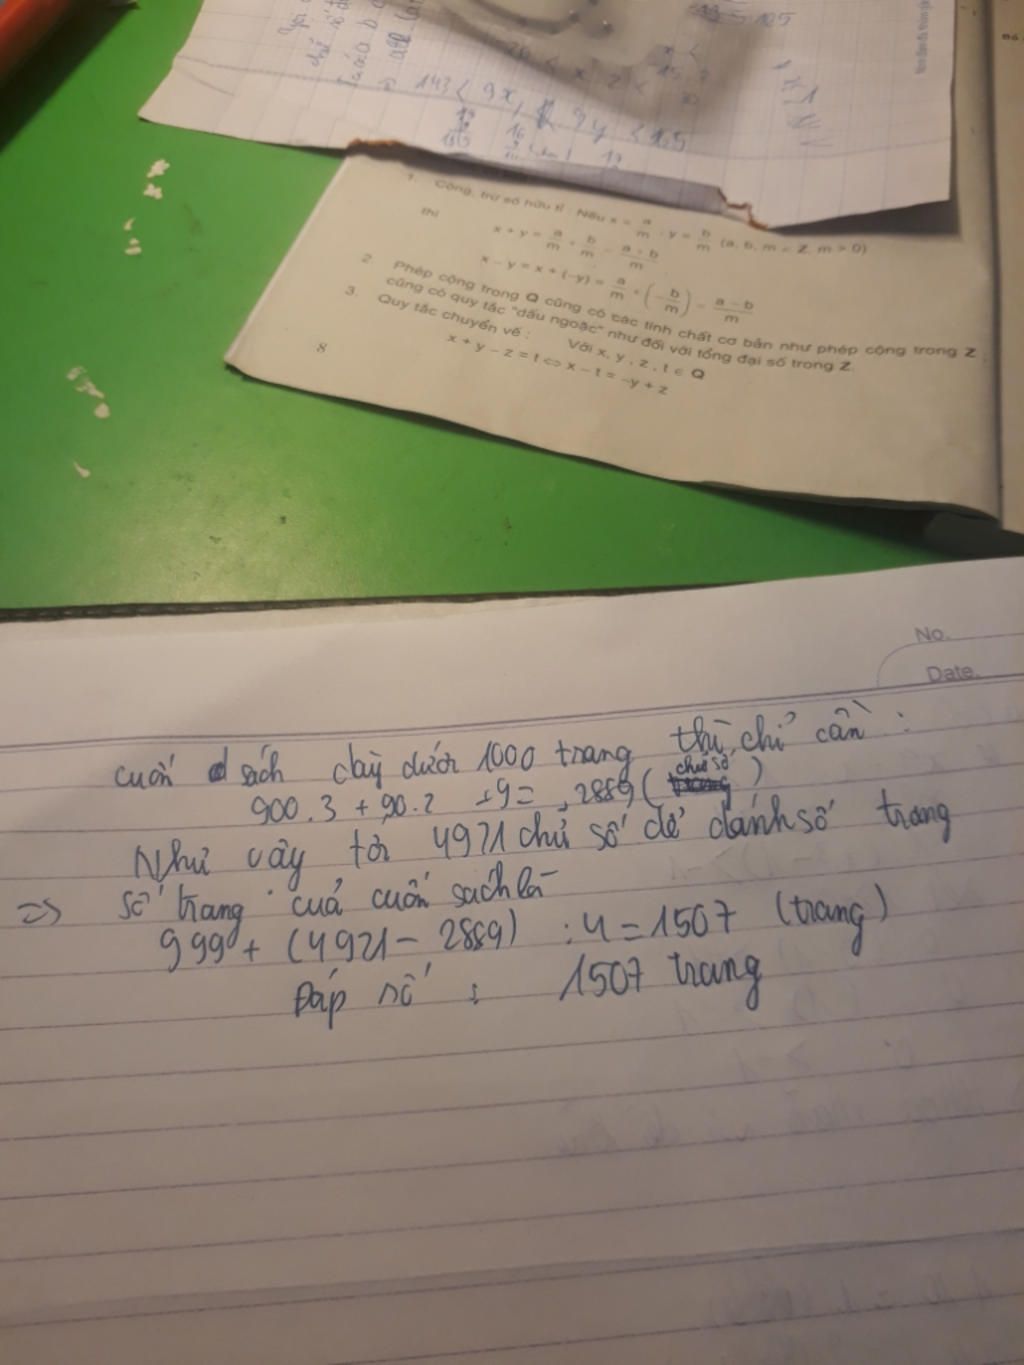 143 < 9x,
9y < 165
1. Cộng, trừ số hữu tỉ : Nếu x = a/m , y = b/m (a, b, m ∈ Z, m > 0)
thì
x + y = a/m + b/m = a + b/m
x − y = x + (−y) = a/m + (−b/m) = a − b/m
2. Phép cộng trong Q cũng có các tính chất cơ bản như phép cộng trong Z ;
cũng có quy tắc "dấu ngoặc" như đối với tổng đại số trong Z.
3. Quy tắc chuyển vế : Với x, y, z, t ∈ Q
x + y − z = t ⇔ x − t = −y + z
8
No.
Date.
cuốn sách dày dưới 1000 trang thì chỉ cần :
900.3 + 90.2 + 9 = 2889 (chữ số)
Như vậy tới 4921 chữ số để đánh số trang
=> số trang của cuốn sách là
999 + (4921 − 2889) : 4 = 1507 (trang)
Đáp số : 1507 trang